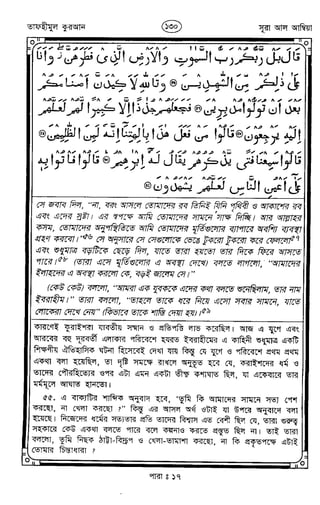 তাফহীমুল কুরআন
১৩০
সূরা আল আম্বিয়া
قَالَ بَلْ رَّبُّكُمْ رَبُّ السَّمٰوٰتِ وَالْاَرْضِ الَّذِىْ فَطَرَهُنَّ ۖ وَاَنَا
عَلٰى ذٰلِكُمْ مِّنَ الشّٰهِدِيْنَ ۞ وَتَاللّٰهِ لَاَكِيْدَنَّ اَصْنَامَكُمْ
بَعْدَ اَنْ تُوَلُّوْا مُدْبِرِيْنَ ۞ فَجَعَلَهُمْ جُذٰذًا اِلَّا كَبِيْرًا لَّهُمْ لَعَلَّهُمْ
اِلَيْهِ يَرْجِعُوْنَ ۞ قَالُوْا مَنْ فَعَلَ هٰذَا بِاٰلِهَتِنَآ اِنَّهٗ لَمِنَ الظّٰلِمِيْنَ ۞
قَالُوْا سَمِعْنَا فَتًى يَّذْكُرُهُمْ يُقَالُ لَهٗٓ اِبْرٰهِيْمُ ۞ قَالُوْا فَاْتُوْا بِهٖ
عَلٰٓى اَعْيُنِ النَّاسِ لَعَلَّهُمْ يَشْهَدُوْنَ ۞
সে জবাব দিল, "না, বরং আসলে তোমাদের রব তিনিই যিনি পৃথিবী ও আকাশের রব
এবং এদের স্রষ্টা। এর স্বপক্ষে আমি তোমাদের সামনে সাক্ষ দিচ্ছি। আর আল্লাহর
কসম, তোমাদের অনুপস্থিতিতে আমি তোমাদের মূর্তিগুলোর ব্যাপারে অবশ্যি ব্যবস্থা
গ্রহণ করবো।"৫৬ সে অনুসারে সে সেগুলোকে ভেঙে টুকরো টুকরো করে ফেললো৫৭
এবং শুধুমাত্র বড়টিকে ছেড়ে দিল, যাতে তারা হয়তো তার দিকে ফিরে আসতে
পারে।৫৮ (তারা এসে মূর্তিগুলোর এ অবস্থা দেখে) বলতে লাগলো, "আমাদের
ইলাহদের এ অবস্থা করলো কে, বড়ই জালেম সে।"
(কেউ কেউ) বললো, "আমরা এক যুবককে এদের কথা বলতে শুনেছিলাম, তার নাম
ইবরাহীম।" তারা বললো, "তাহলে তাকে ধরে নিয়ে এসো সবার সামনে, যাতে
লোকেরা দেখে নেয়" (কিভাবে তাকে শাস্তি দেয়া হয়)।৫৯
কারণেই কুরাইশরা যাবতীয় সম্মান ও প্রতিপত্তি লাভ করেছিল। আজ এ যুগে এবং
আরবের বহু দূরবর্তী এলাকার পরিবেশে হযরত ইবরাহীমের এ কাহিনী শুধুমাত্র একটি
শিক্ষণীয় ঐতিহাসিক ঘটনা হিসেবেই দেখা যায় কিন্তু যে যুগে ও পরিবেশে প্রথম প্রথম
একথা বলা হয়েছিল, তা দৃষ্টি সমক্ষে রাখলে অনুভূত হবে যে, কুরাইশদের ধর্ম ও
তাদের পৌরহিত্যের ওপর এটা এমন একটা তীক্ষ্ণ কশাঘাত ছিল, যা একেবারে তার
মর্মমূলে আঘাত হানতো।
৫৫. এ বাক্যটির শাব্দিক অনুবাদ হবে, "তুমি কি আমাদের সামনে সত্য পেশ
করছো, না খেলা করছো ?" কিন্তু এর আসল অর্থ ওটাই যা উপরে অনুবাদে বলা
হয়েছে। নিজেদের ধর্মের সত্যতার প্রতি তাদের বিশ্বাস এত বেশী ছিল যে, তারা গুরুত্ব
সহকারে কেউ একথা বলতে পারে বলে কল্পনাও করতে প্রস্তুত ছিল না। তাই তারা
বললো, তুমি নিছক ঠাট্টা-বিদ্রূপ ও খেলা-তামাশা করছো, না কি প্রকৃতপক্ষে এটাই
তোমার চিন্তাধারা ?
পারা ঃ ১৭